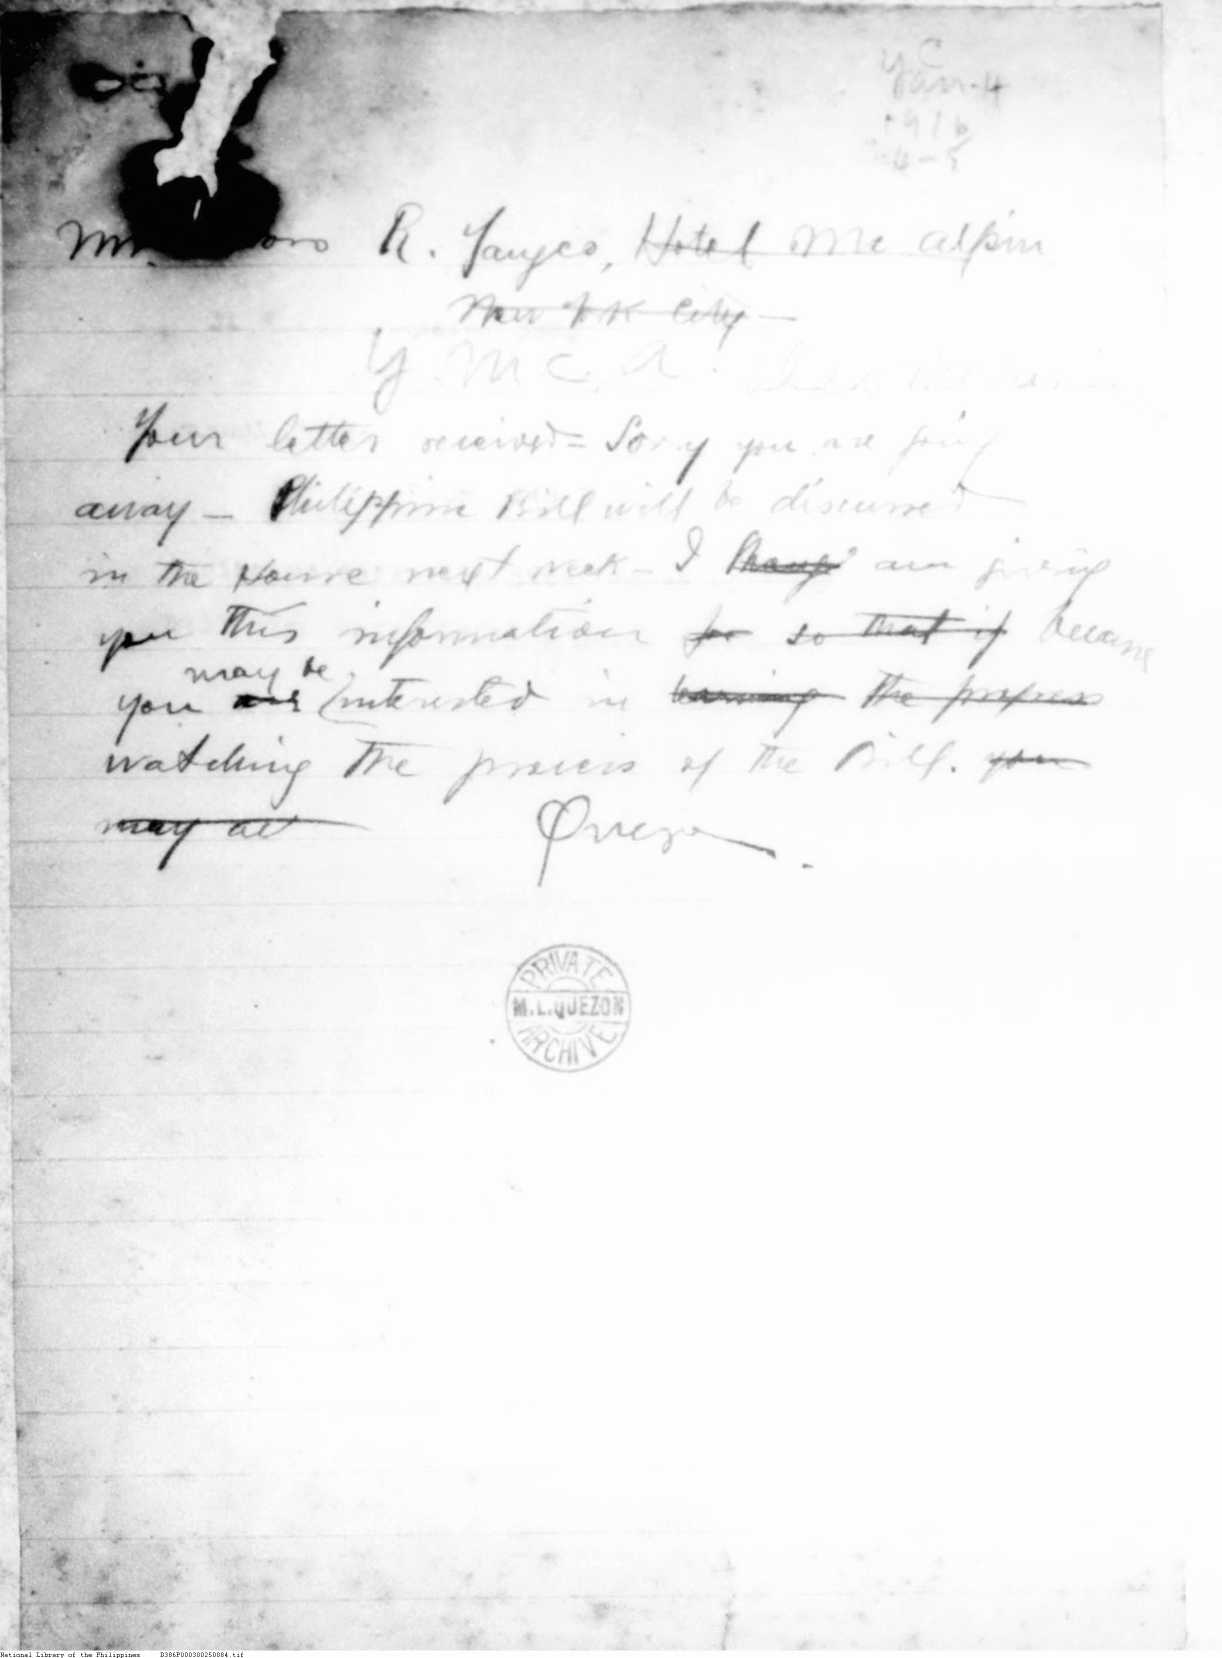 Jan. 4
1916
R. Yangco, Hotel McAlpin
New York City
Y. M. C. A.
Your letter received = Sorry you are going
away — Philippine Bill will be discussed
in the House next week — I am giving
you this information for so that if because
may be
you are interested in learning the progress
watching the process of the Bill. you
may
Quezon.
PRIVATE
M.L.QUEZON
ARCHIVE
National Library of the Philippines D386P000300250884.tif